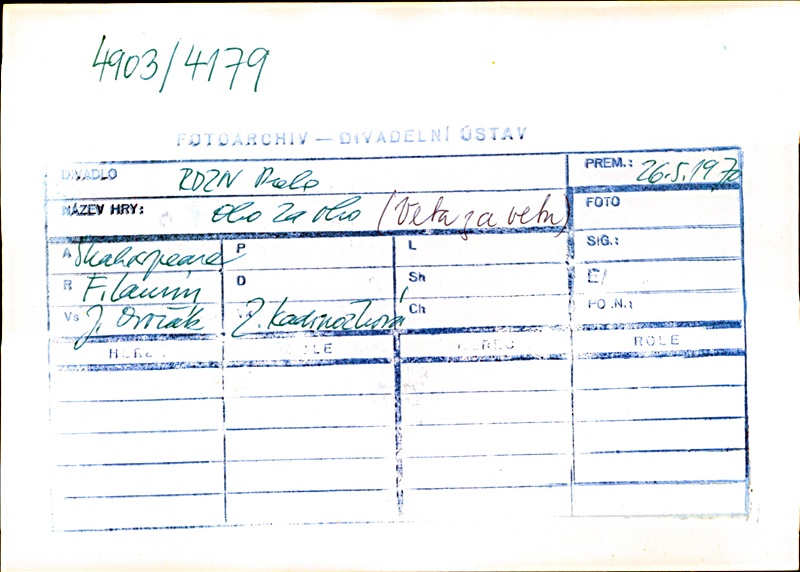 4903/4179
FOTOARCHIV — DIVADELNÍ ÚSTAV
DIVADLO RDZN PREM.: 26.5.1970
NÁZEV HRY: Oko za oko (Veta za vetu) FOTO
A Shakespeare P L SIG.:
R F. Laurin O Sh E/
Vs J. Dvořák J. Kadrnožková Ch PO .N.:
HEREC ROLE HEREC ROLE